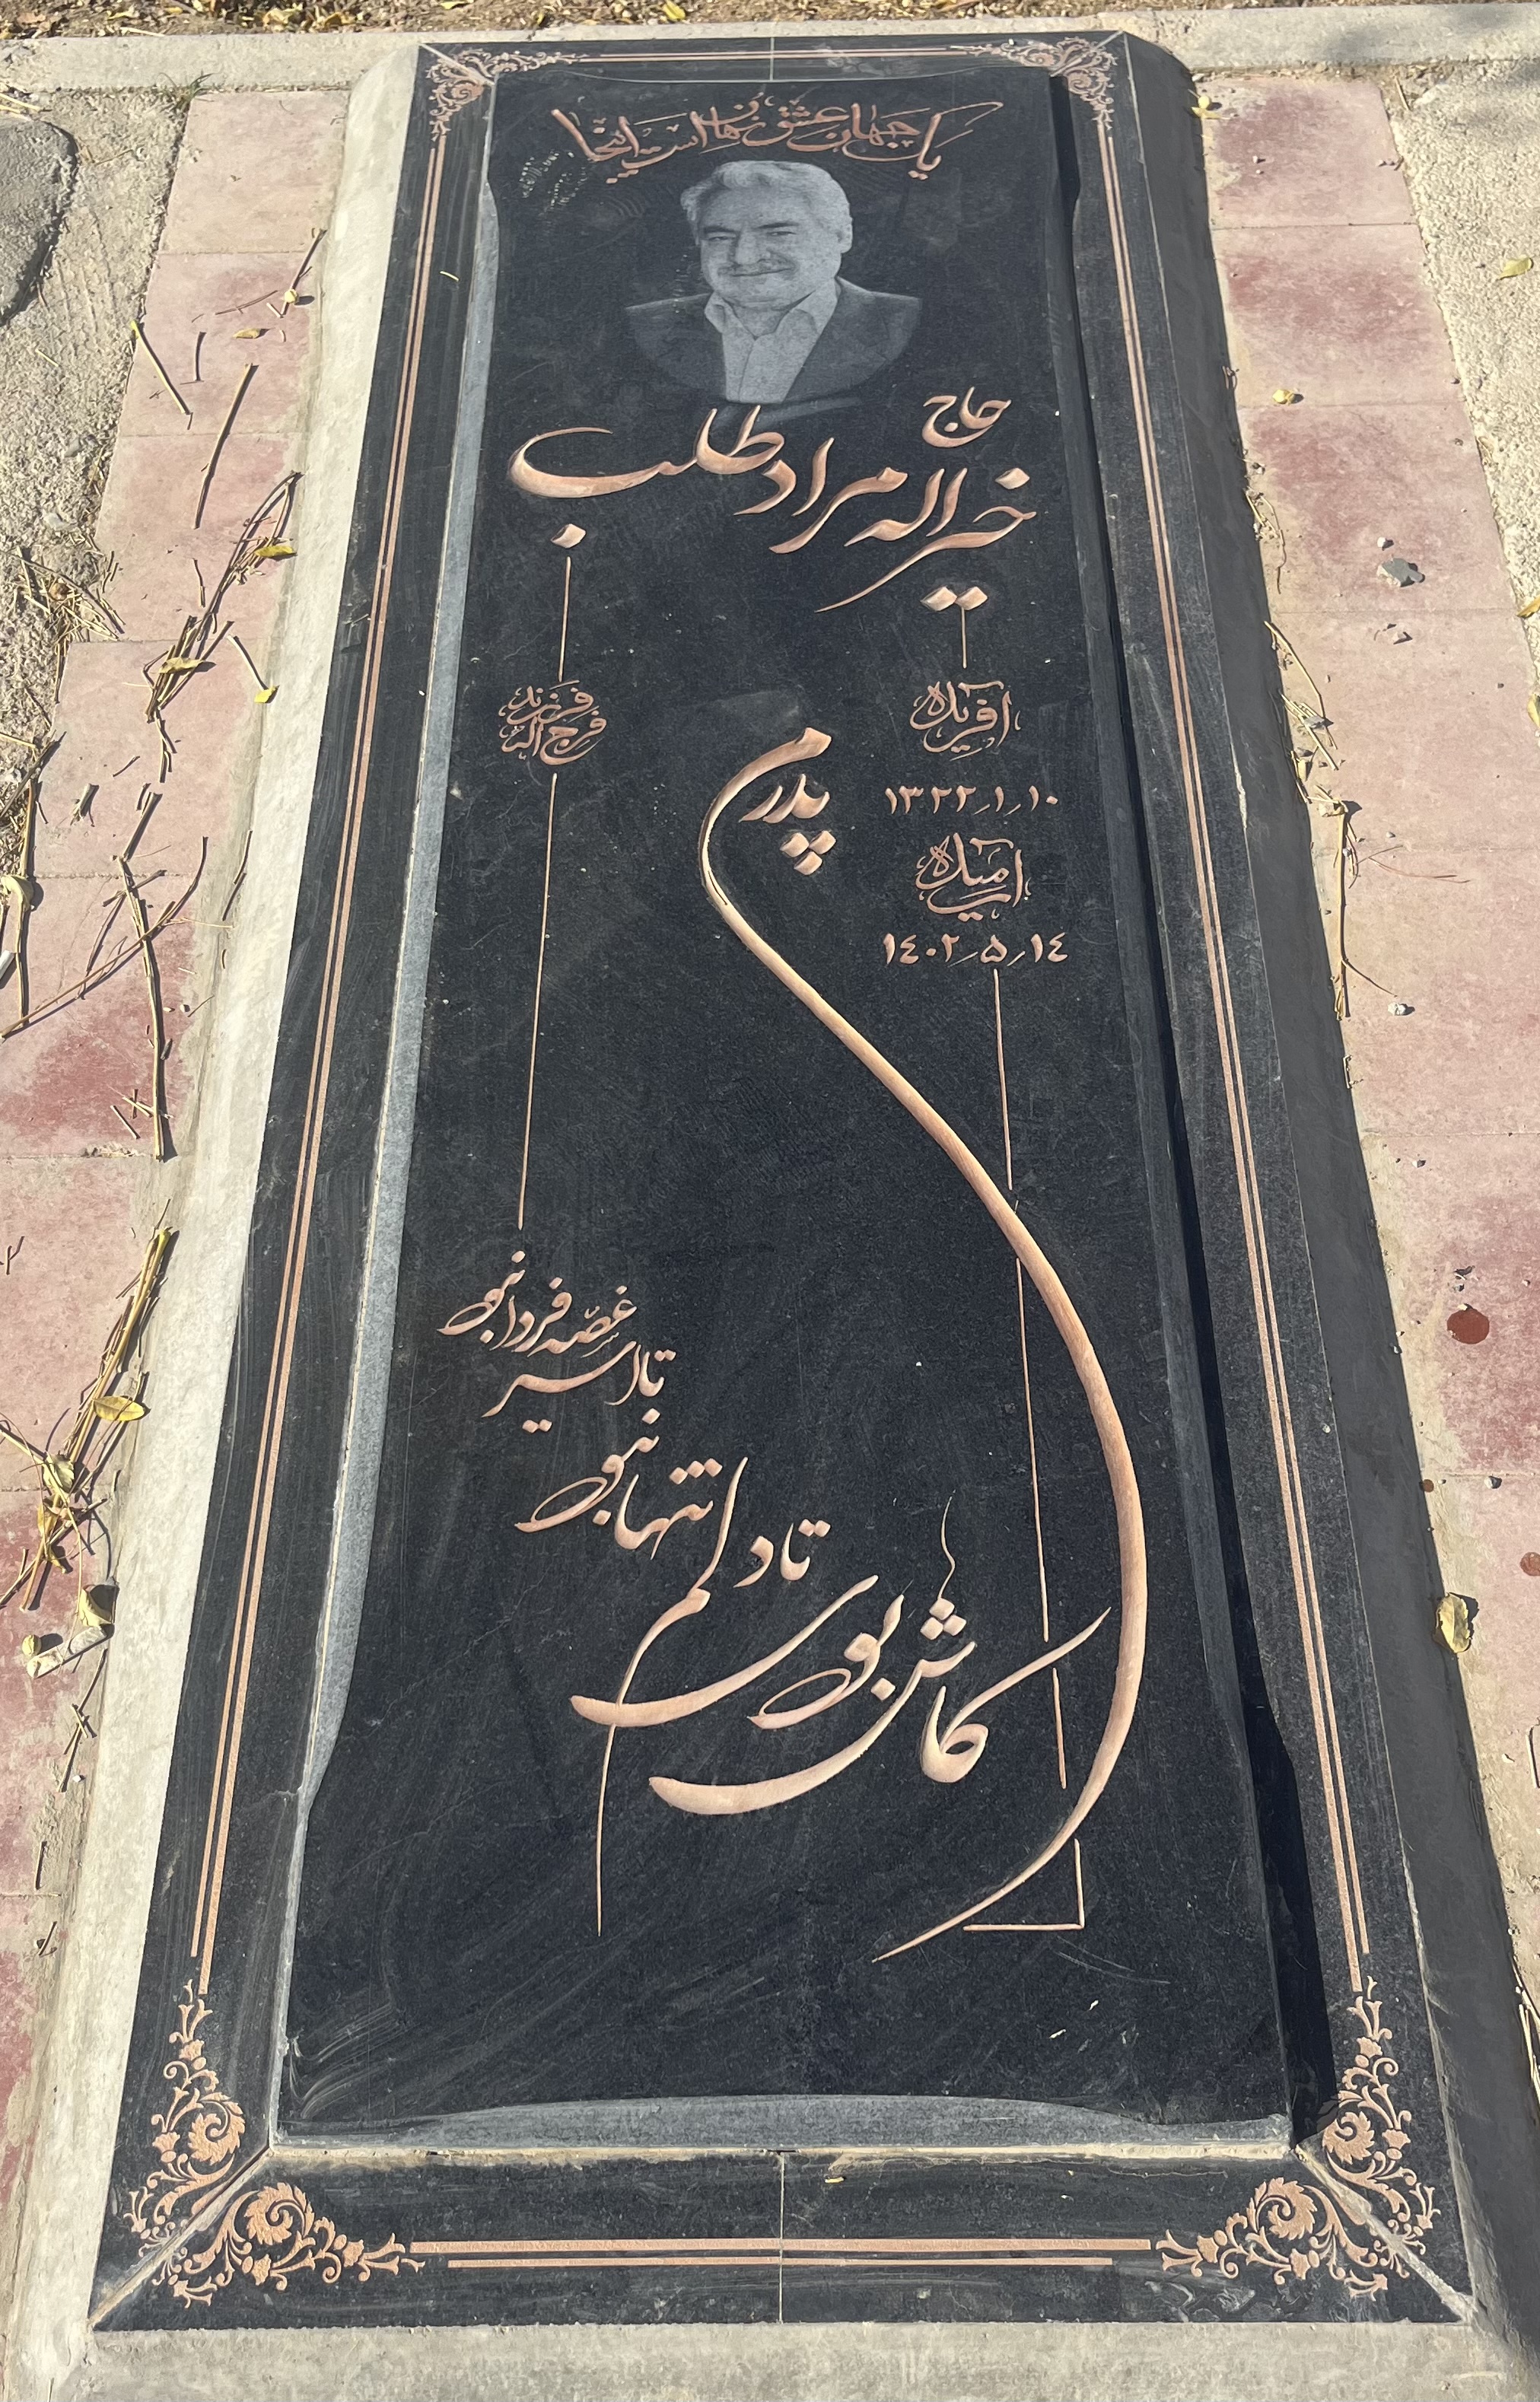 یک جهان عشق نهان است اینجا
حاج
خیراله مرادطلب
فرزند
فرج اله
آفریده
۱۳۲۲٫۱٫۱۰
آرمیده
۱٤۰۲٫۵٫۱٤
پدرم
کاش بودی تا دلم تنها نبود
تا اسیر غصّه فردا نبود